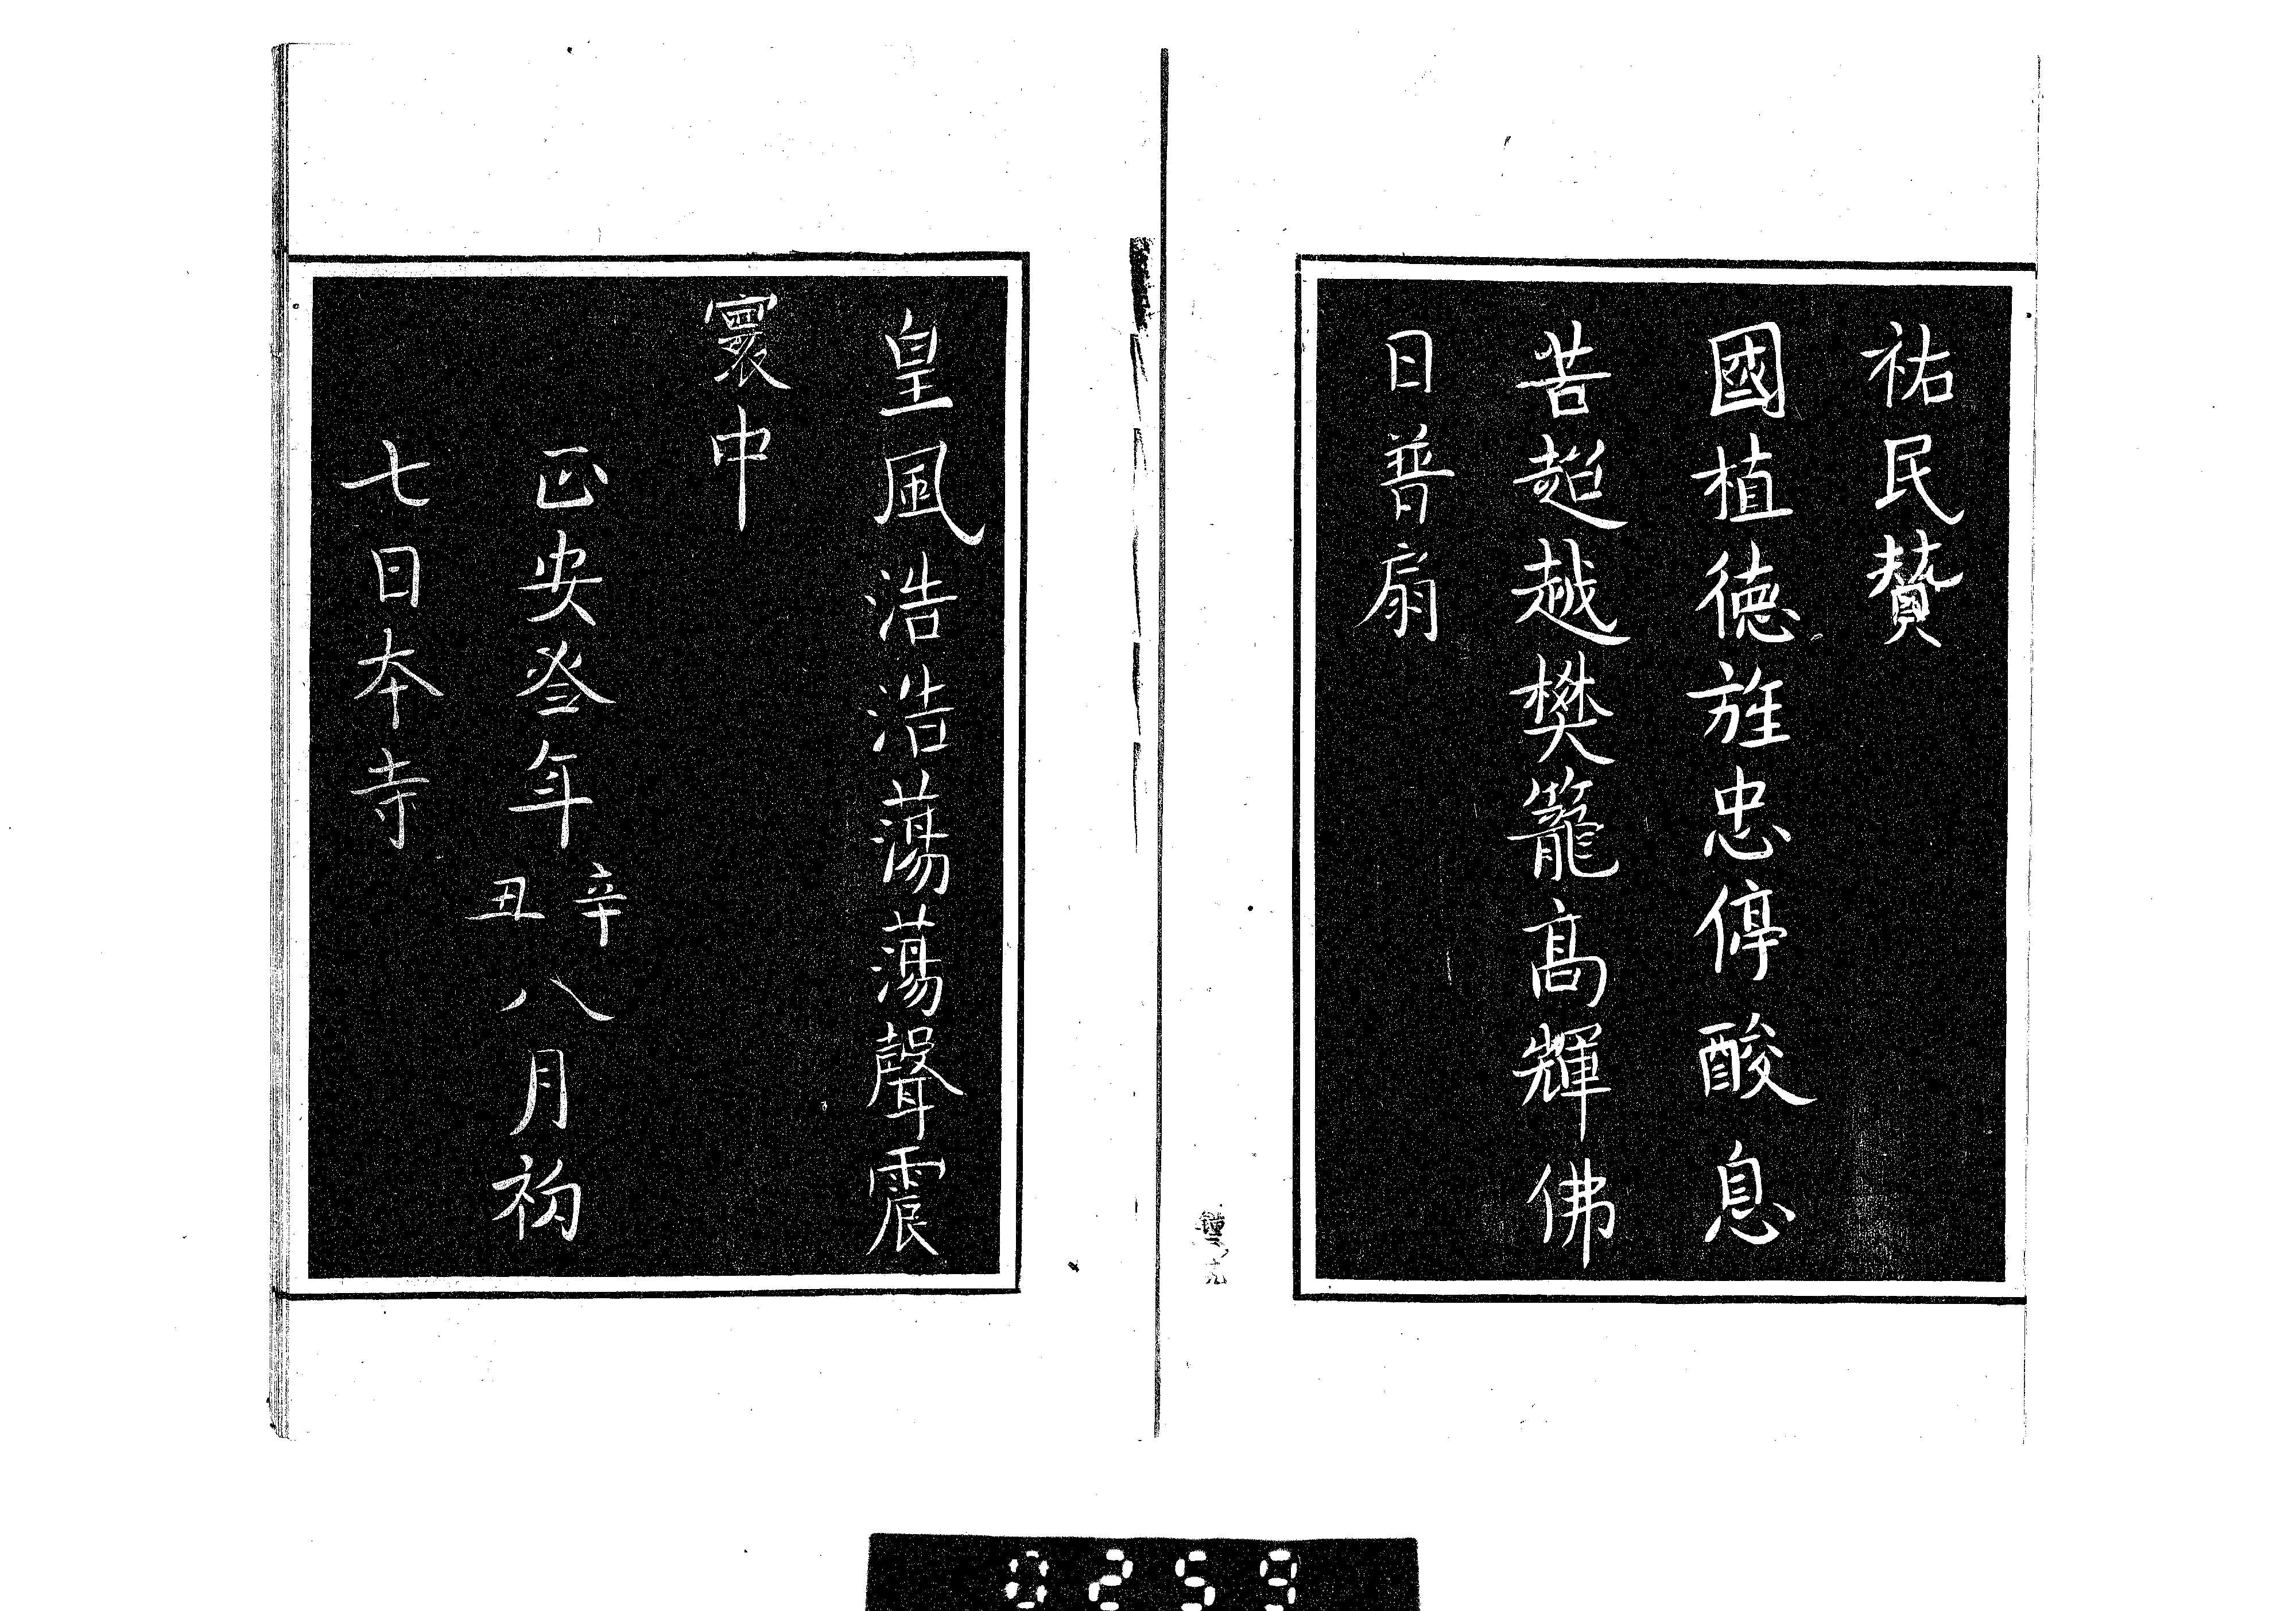 祐民贊
國植德旌忠停酸息
苦超越樊籠高輝佛
日普扇
皇風浩浩蕩蕩聲震
寰中
正安叄年辛丑八月初
七日本寺
0259